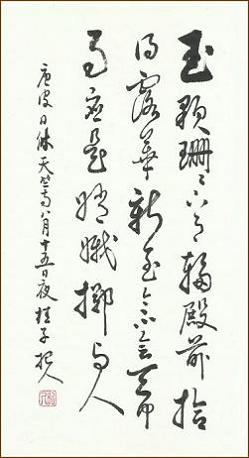 玉顆珊々下月輪殿前拾
得露華新至今不會天中
事應是嫦娥擲與人
唐皮日休天竺寺八月十五日夜桂子